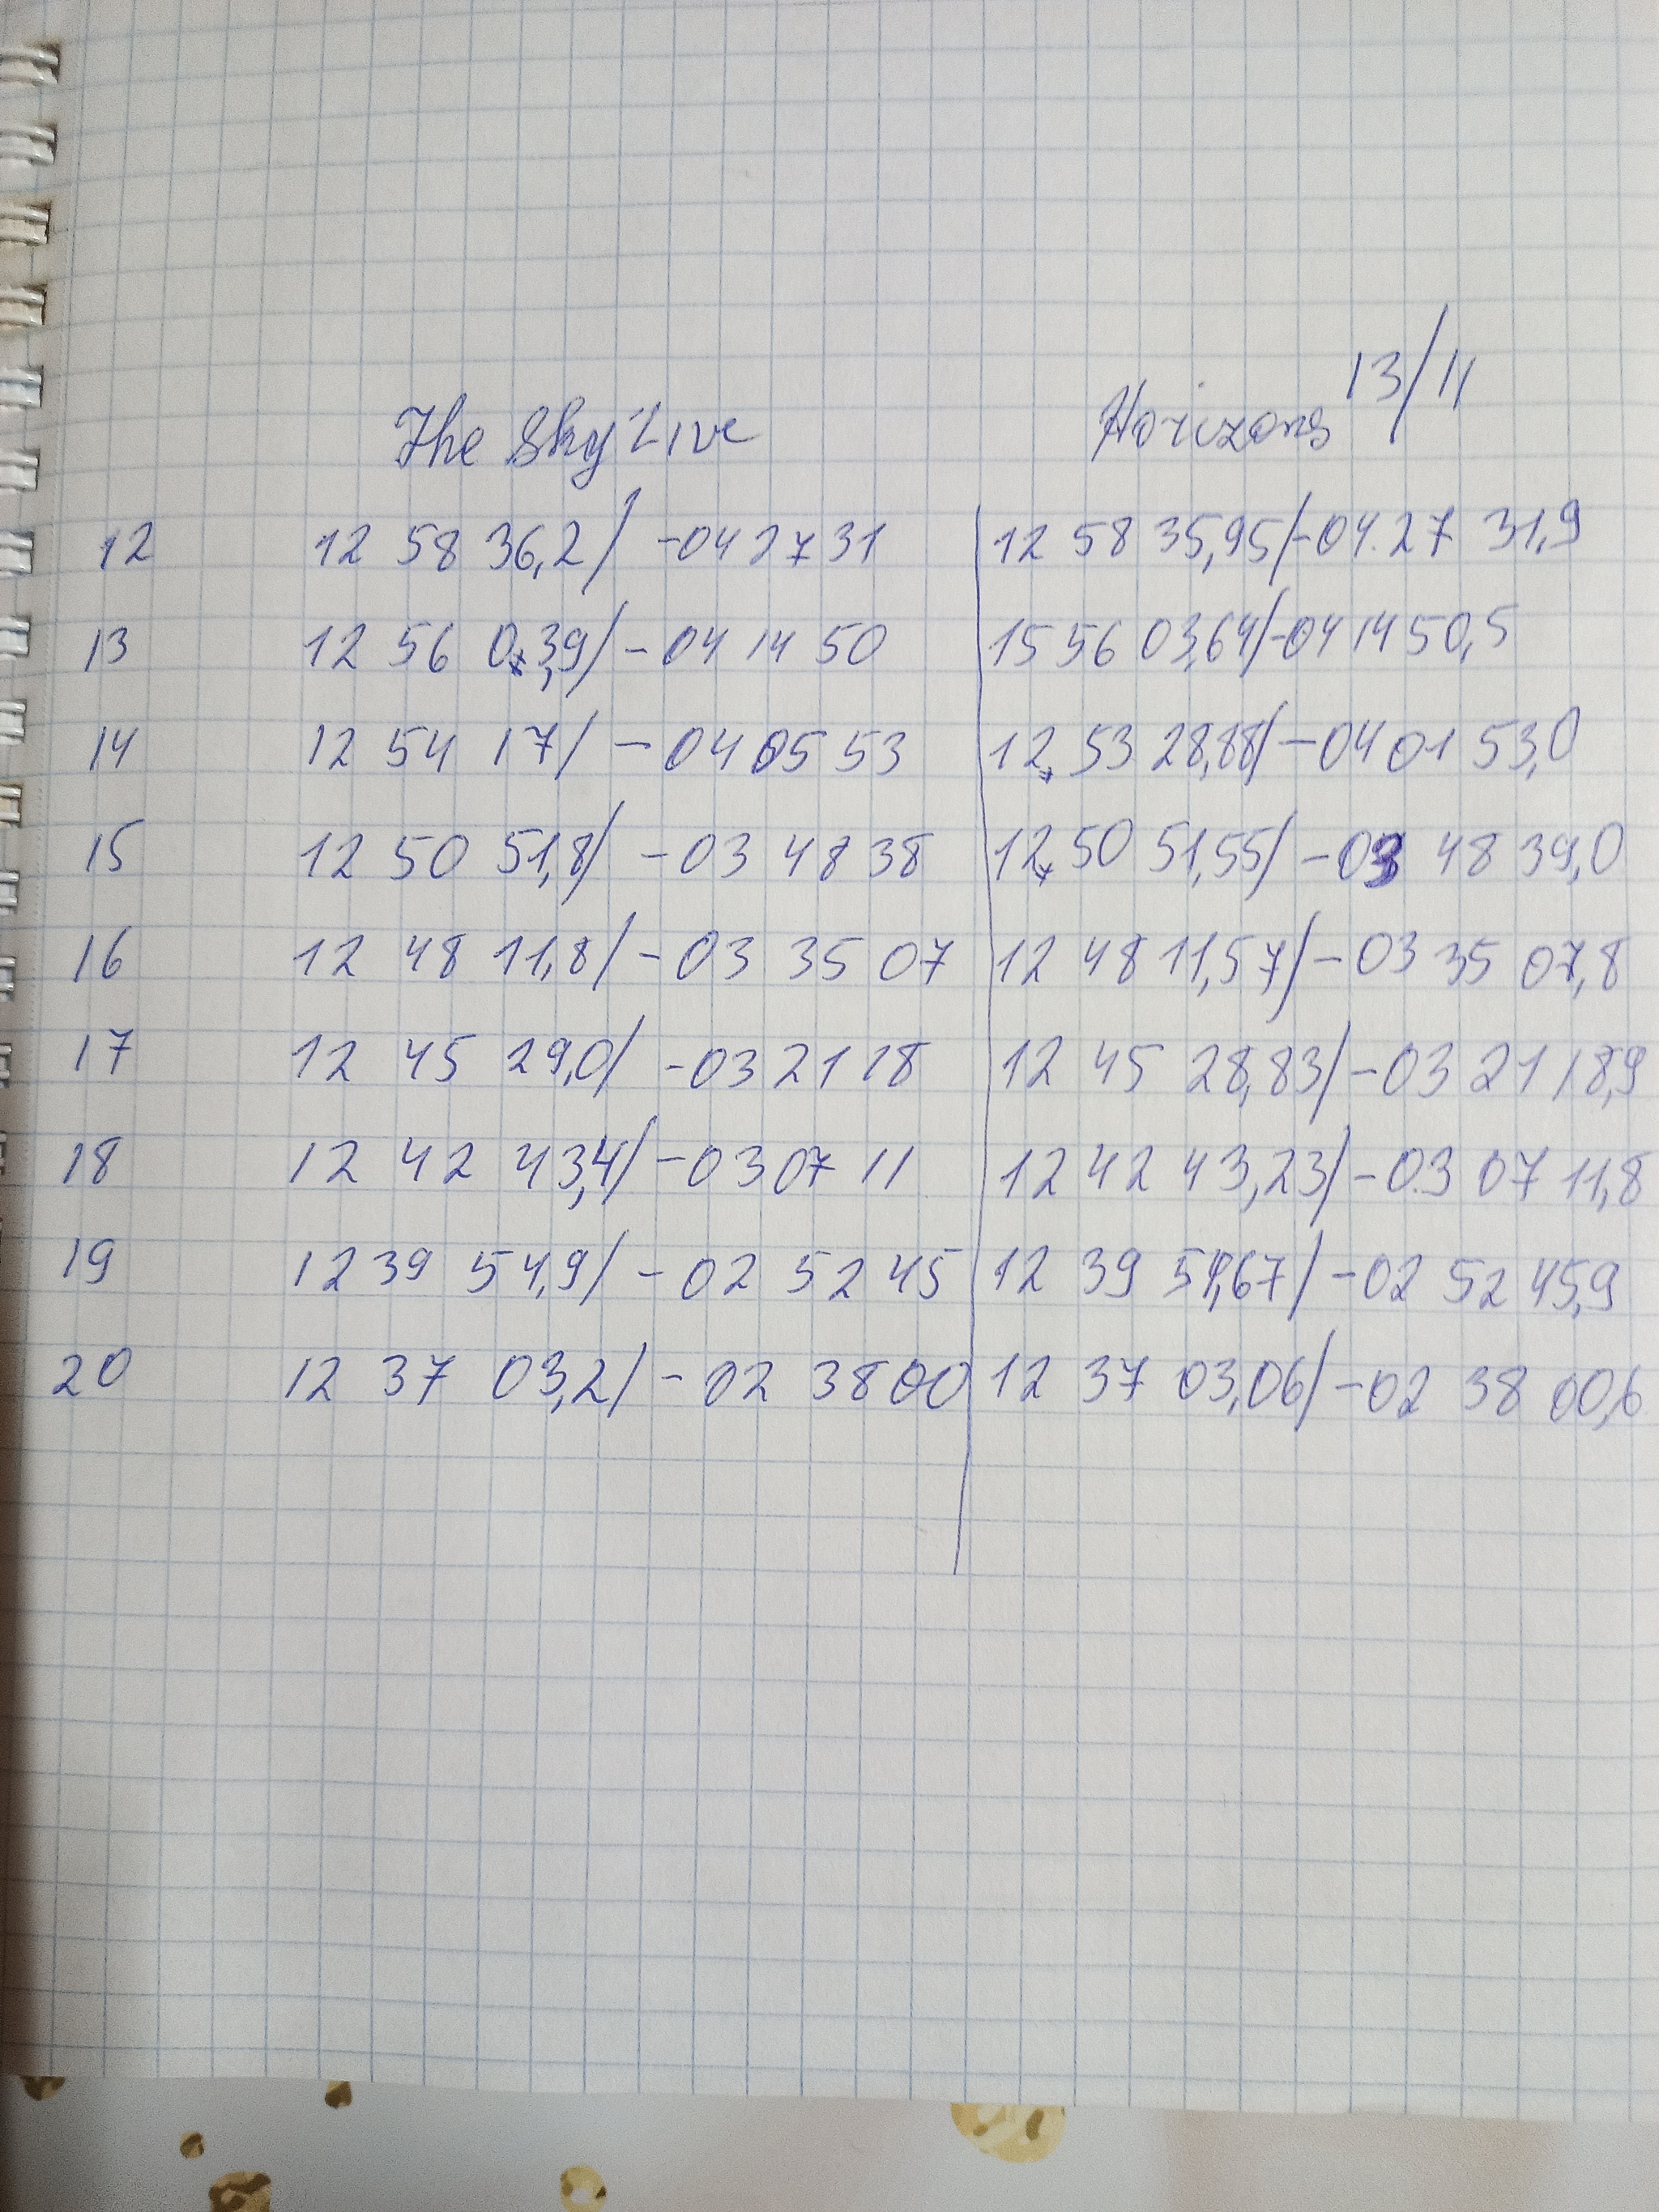 13/11
The Sky Live Horizons
12 12 58 36,2 / -04 27 31 12 58 35,95 / -04. 27 31,9
13 12 56 03,9 / -04 14 50 15 56 03,64 / -04 14 50,5
14 12 54 17 / -04 05 53 12, 53 28,88 / -04 01 53,0
15 12 50 51,8 / -03 48 38 12, 50 51,55 / -03 48 39,0
16 12 48 11,8 / -03 35 07 12 48 11,57 / -03 35 07,8
17 12 45 29,0 / -03 21 18 12 45 28,83 / -03 21 18,9
18 12 42 43,4 / -03 07 11 12 42 43,23 / -03 07 11,8
19 12 39 54,9 / -02 52 45 12 39 54,67 / -02 52 45,9
20 12 37 03,2 / -02 38 00 12 37 03,06 / -02 38 00,6